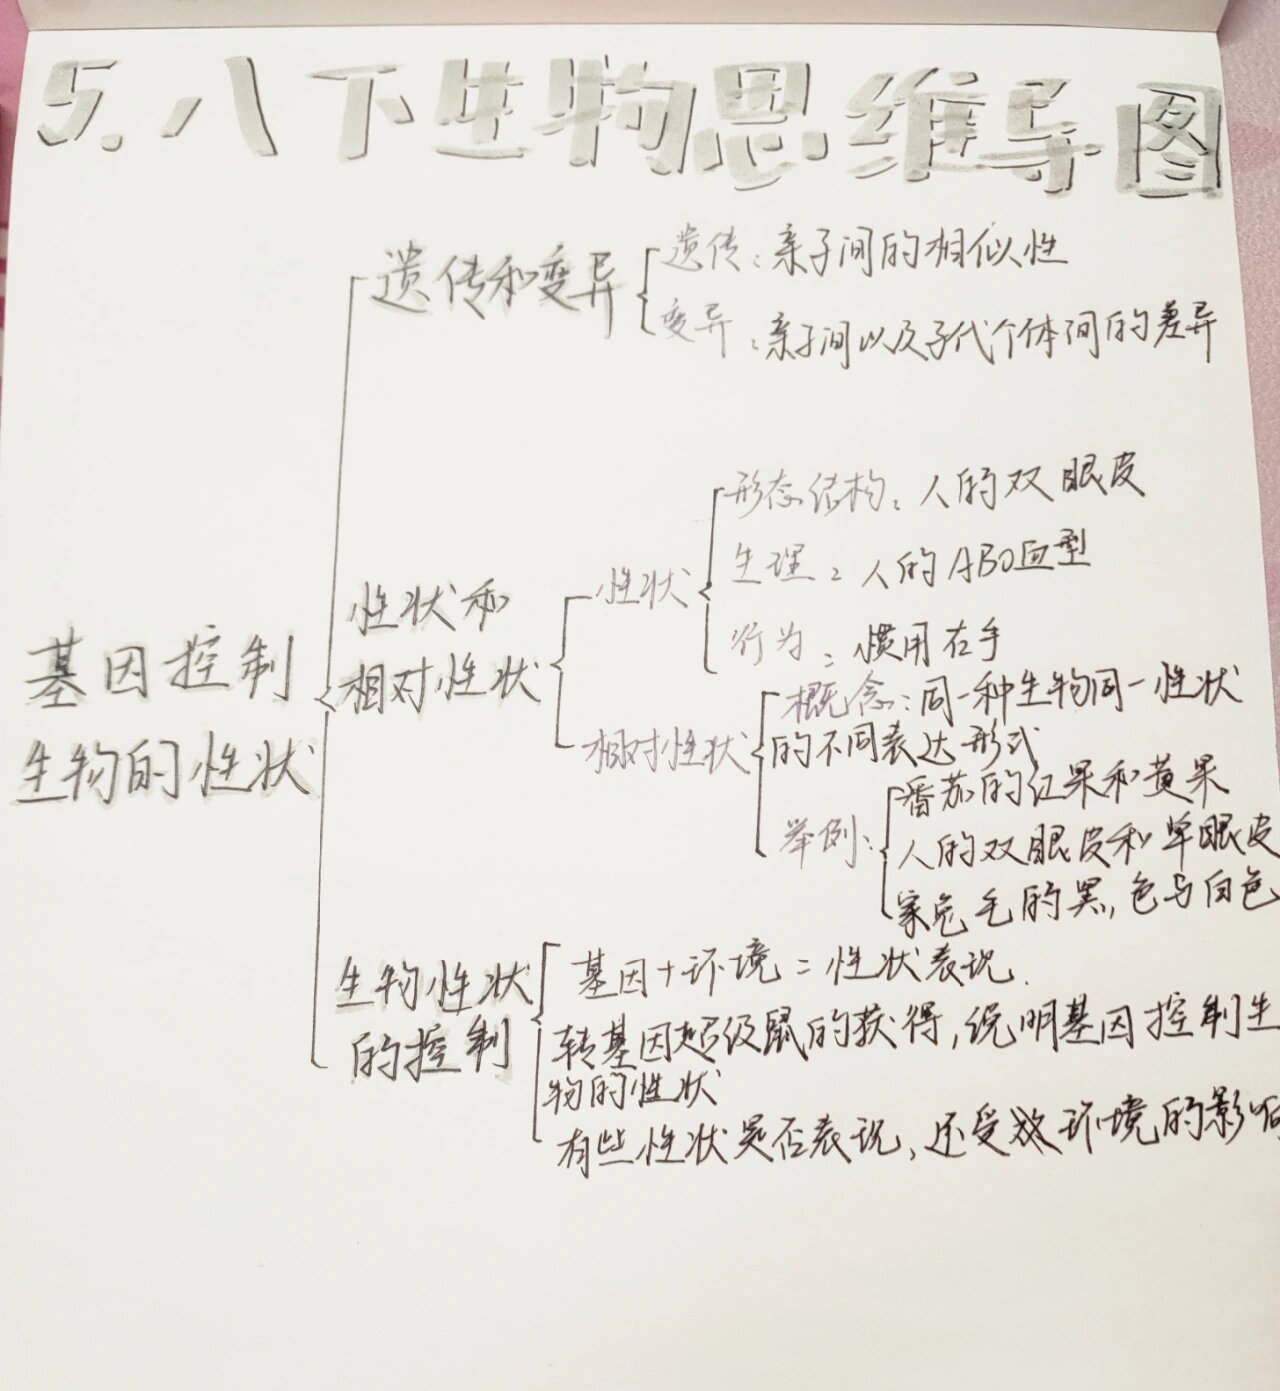 5.八下生物思维导图
遗传和变异
遗传:亲子间的相似性
变异:亲子间以及子代个体间的差异
基因控制
生物的性状
性状和
相对性状
性状
形态结构:人的双眼皮
生理:人的ABO血型
行为:惯用右手
相对性状
概念:同一种生物同一性状
的不同表达形式
举例:
番茄的红果和黄果
人的双眼皮和单眼皮
家兔毛的黑,色与白色
生物性状
的控制
基因+环境=性状表现.
转基因超级鼠的获得,说明基因控制生
物的性状
有些性状是否表现,还受环境的影响